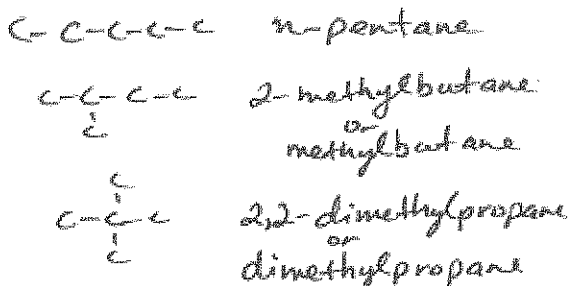 C-C-C-C-C n-pentane
C-C-C-C 2-methylbutane
C or
methylbutane
C
C-C-C 2,2-dimethylpropane
C or
dimethylpropane